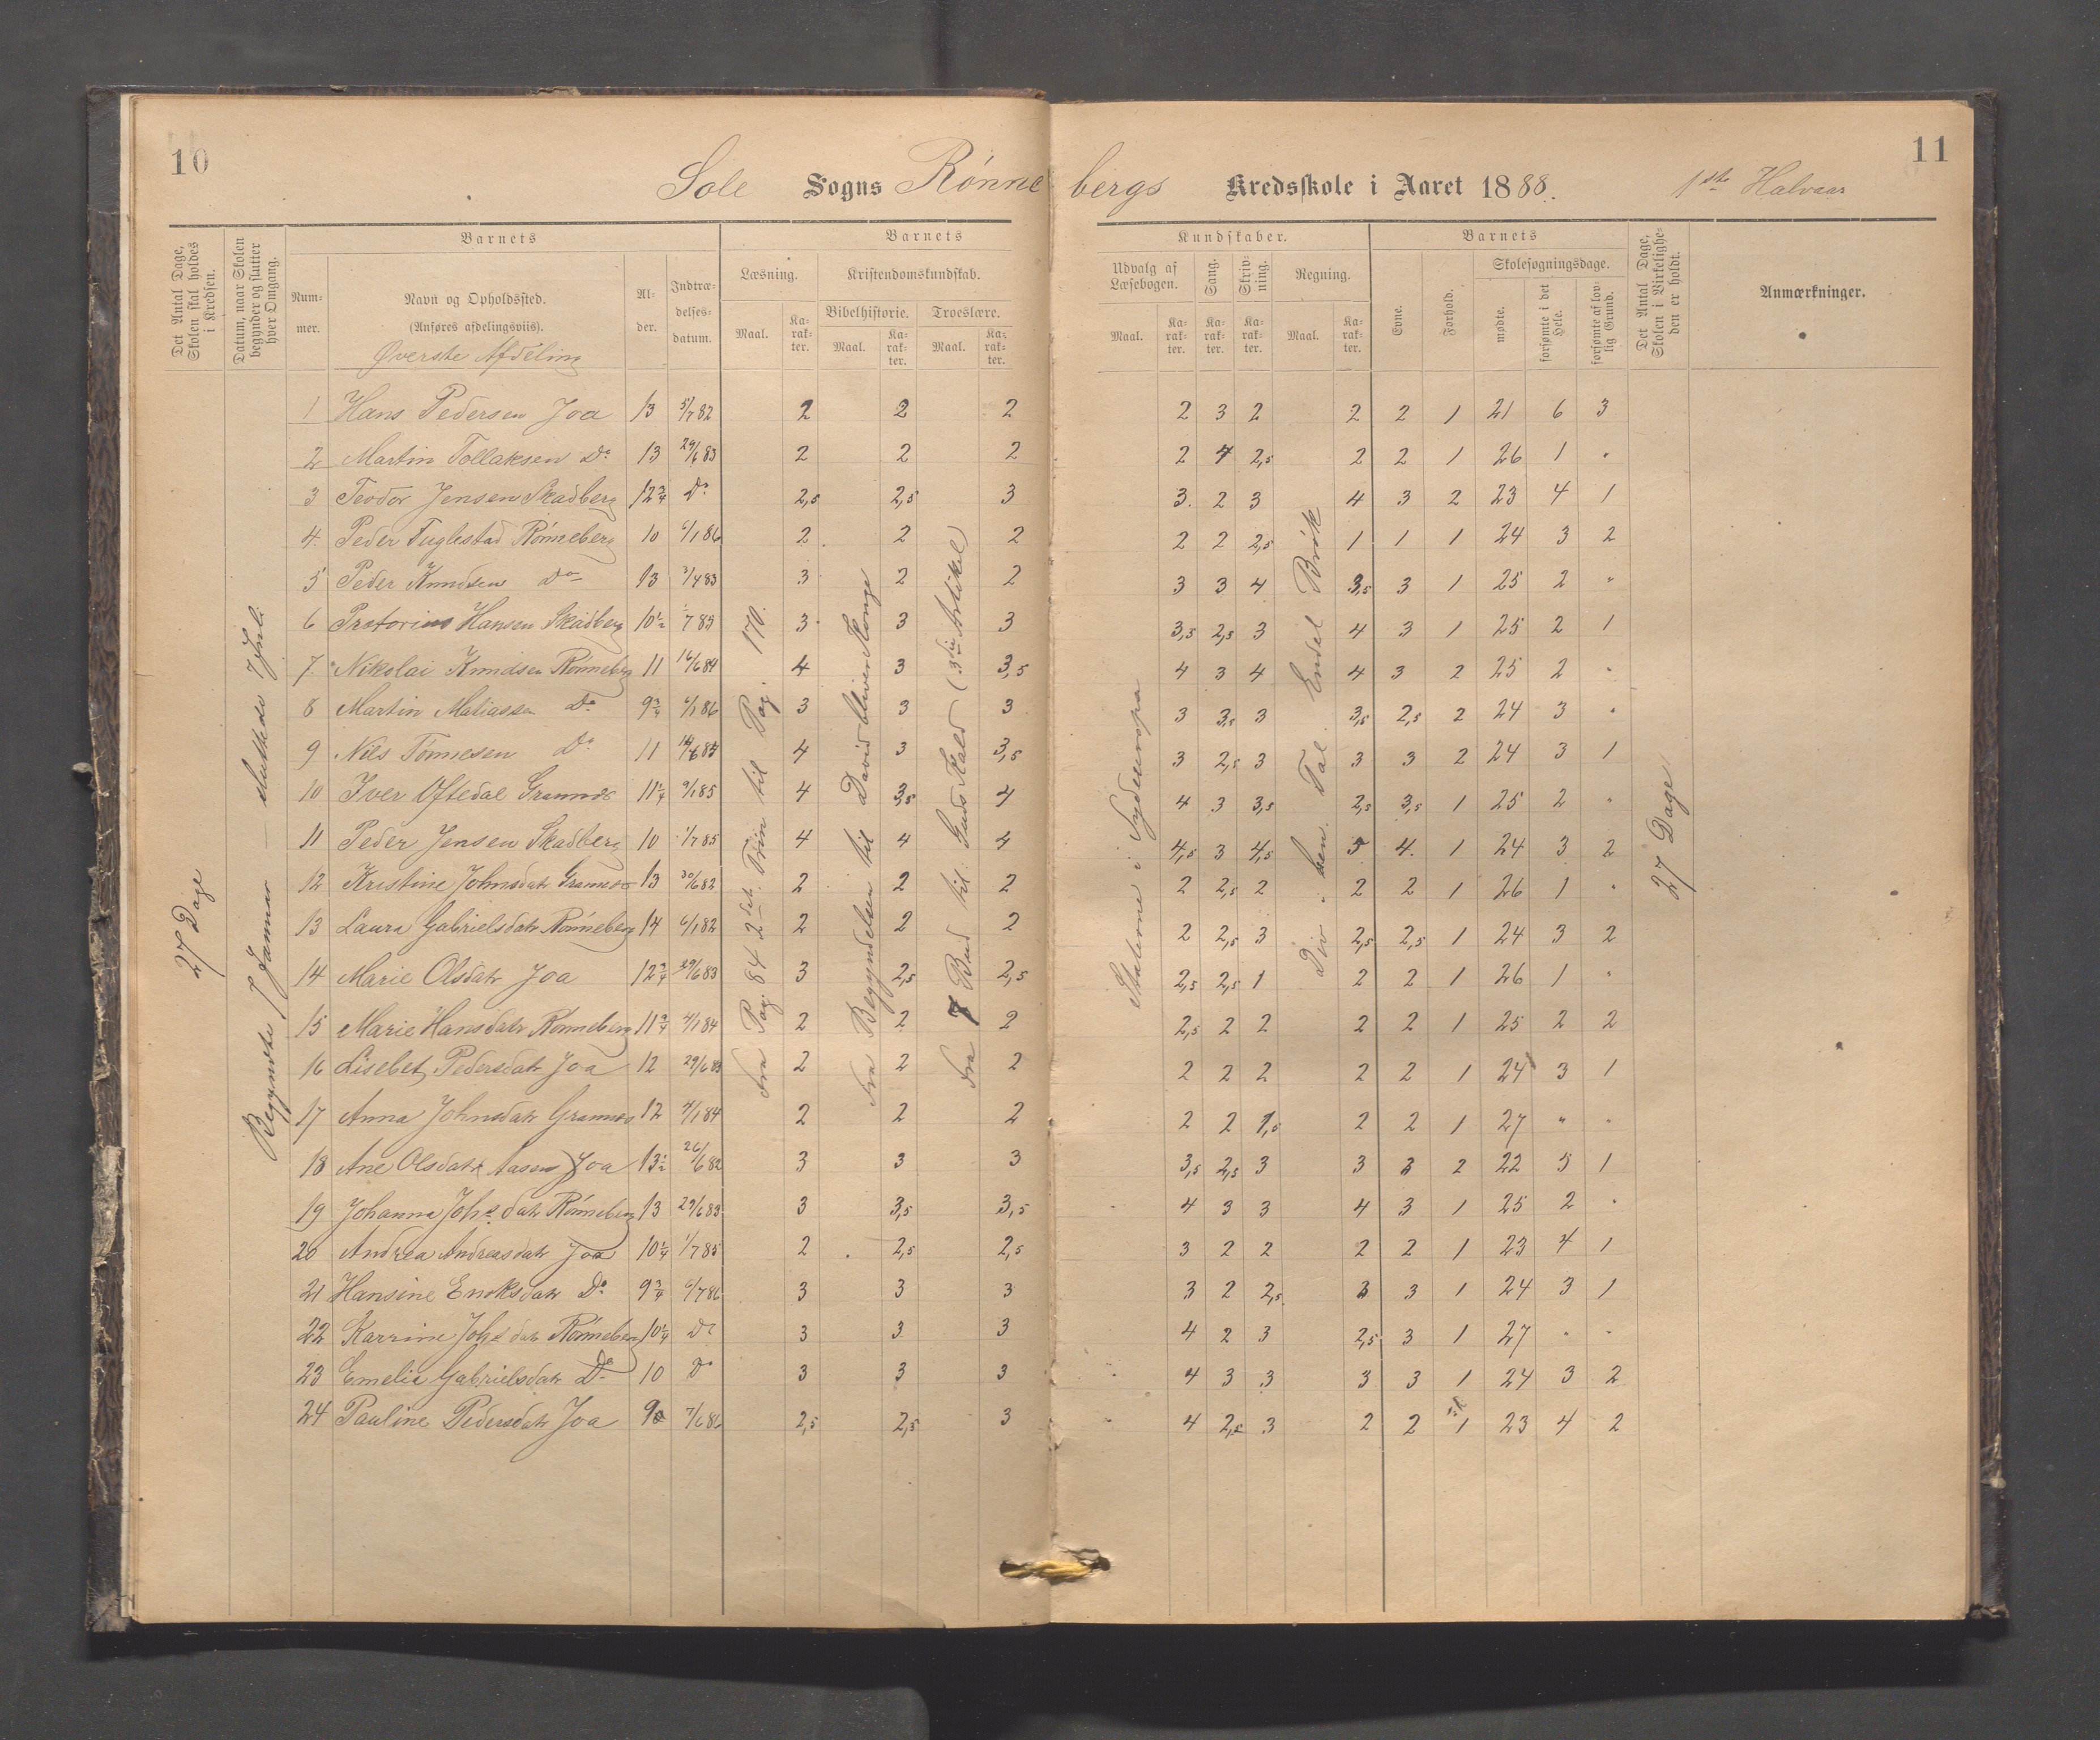 10
Sole Sogns Rönne
bergs Kredsskole i Aaret 1888. 1ste Halvaar
11
Det Antal Dage, Skolen skal holdes i Kredsen.
Datum, naar Skolen begynder og slutter hver Omgang.
Barnets
Num-mer.
Navn og Opholdssted.
(Anføres afdelingsviis).
Øverste Afdeling
Al-der.
Indtræ-delses-datum.
Barnets
Læsning.
Maal.
Ka-rak-ter.
Kristendomskundskab.
Bibelhistorie.
Maal.
Ka-rak-ter.
Troeslære.
Maal.
Ka-rak-ter.
Kundskaber.
Udvalg af Læsebogen.
Maal.
Ka-rak-ter.
Sang.
Ka-rak-ter.
Skriv-ning.
Ka-rak-ter.
Regning.
Maal.
Ka-rak-ter.
Barnets
Evne.
Forhold.
Skolesøgningsdage.
mødte.
forsømte i det Hele.
forsømte af lov-lig Grund.
Det Antal Dage, Skolen i Virkelighe-den er holdt.
Anmærkninger.
27 Dage
Begyndte 7 Januar - sluttede 7 Juli
Fra Pag. 84 2det Trin til Pag. 170.
Fra Begyndelsen til David bliver Konge
Fra 7 Bud til Guds Kald (3die Artikel)
Staterne i Sydeuropa
Div. ben. Tal. Endel Brök
27 Dage
1 Hans Pedersen Joa 13 5/7 82 2 2 2 2 3 2 2 2 1 21 6 3
2 Martin Tollaksen Do 13 29/6 83 2 2 2 2 4 2,5 2 2 1 26 1 "
3 Teodor Jensen Skadberg 12 3/4 Do 2,5 2,5 3 3. 2 3 4 3 2 23 4 1
4. Peder Fuglestad Rönneberg 10 6/1 86 2 2 2 2 2 2,5 1 1 1 24 3 2
5 Peder Knudsen Do 13 3/4 83 3 2 2 3 3 4 3,5 3 1 25 2 "
6 Pretorius Hansen Skadberg 10 1/2 7 83 3 3 3 3,5 2,5 3 4 3 1 25 2 1
7. Nikolai Knudsen Rönneberg 11 16/6 84 4 3 3,5 4 3 4 4 3 2 25 2 "
8 Martin Matiassen Do 9 3/4 6/1 86 3 3 3 3 3,5 3 3,5 2,5 2 24 3 "
9 Nils Tönnesen Do 11 16/6 84 4 3 3,5 3 2,5 3 3 3 2 24 3 1
10 Iver Oftedal Grannes 11 1/4 9/1 85 4 3,5 4 4 3 3,5 2,5 3,5 1 25 2 "
11 Peder Jensen Skadberg 10 1/7 85 4 4 4 4,5 3 4,5 5 4. 1 24 3 2
12 Kristine Johnsdatr Grannes 13 30/6 82 2 2 2 2 2,5 2 2 2 1 26 1 "
13 Laura Gabrielsdatr Rönneberg 14 6/1 82 2 2 2 2 2,5 3 2,5 2,5 1 24 3 2
14 Marie Olsdatr Joa 12 3/4 29/6 83 3 2,5 2,5 2,5 2,5 1 2 2 1 26 1 "
15 Marie Hansdatr Rönneberg 11 3/4 4/1 84 2 2 2 2,5 2 2 2 2 1 25 2 2
16 Lisebet Pedersdatr Joa 12 29/6 83 2 2 2 2 2 2 2 2 1 24 3 1
17 Anna Johnsdatr Grannes 12 4/1 84 2 2 2 2 2 1,5 2 2 1 27 " "
18 Ane Olsdatr (Aasen) Joa 13 1/2 26/6 82 3 3 3 3,5 2,5 3 3 3 2 22 5 1
19 Johanna Johsdatr Rönneberg 13 29/6 83 3 3,5 3,5 4 3 3 4 3 1 25 2 "
20 Andrea Andreasdatr Joa 10 1/4 1/7 85 2 2,5 2,5 3 2 2 2 2 1 23 4 1
21 Hansine Enoksdatr Do 9 3/4 6/7 86 3 3 3 3 2 2,5 3 3 1 24 3 1
22 Karrine Johsdatr Rönneberg 10 1/4 Do 3 3 3 4 2 3 2,5 3 1 27 " "
23 Emelie Gabrielsdatr Do 10 Do 3 3 3 4 3 3 3 3 1 24 3 2
24 Pauline Pedersdatr Joa 9 7/6 86 2,5 2,5 3 4 2,5 3 2 2 1 23 4 2